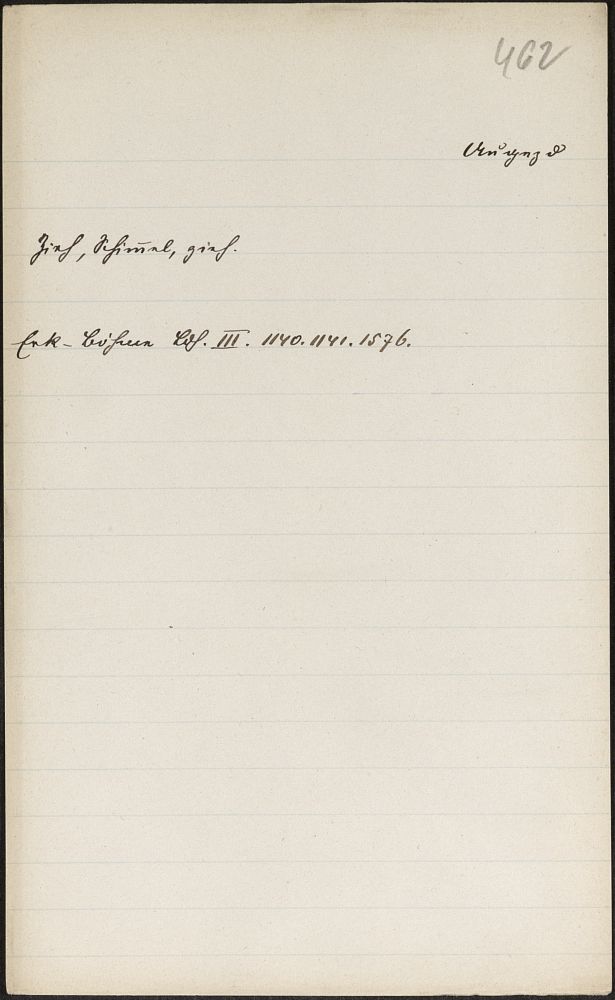 462
Augezd
Zieh, Schim̅el, zieh.
Erk-Böhme Ldh. III. 1140. 1141. 1576.